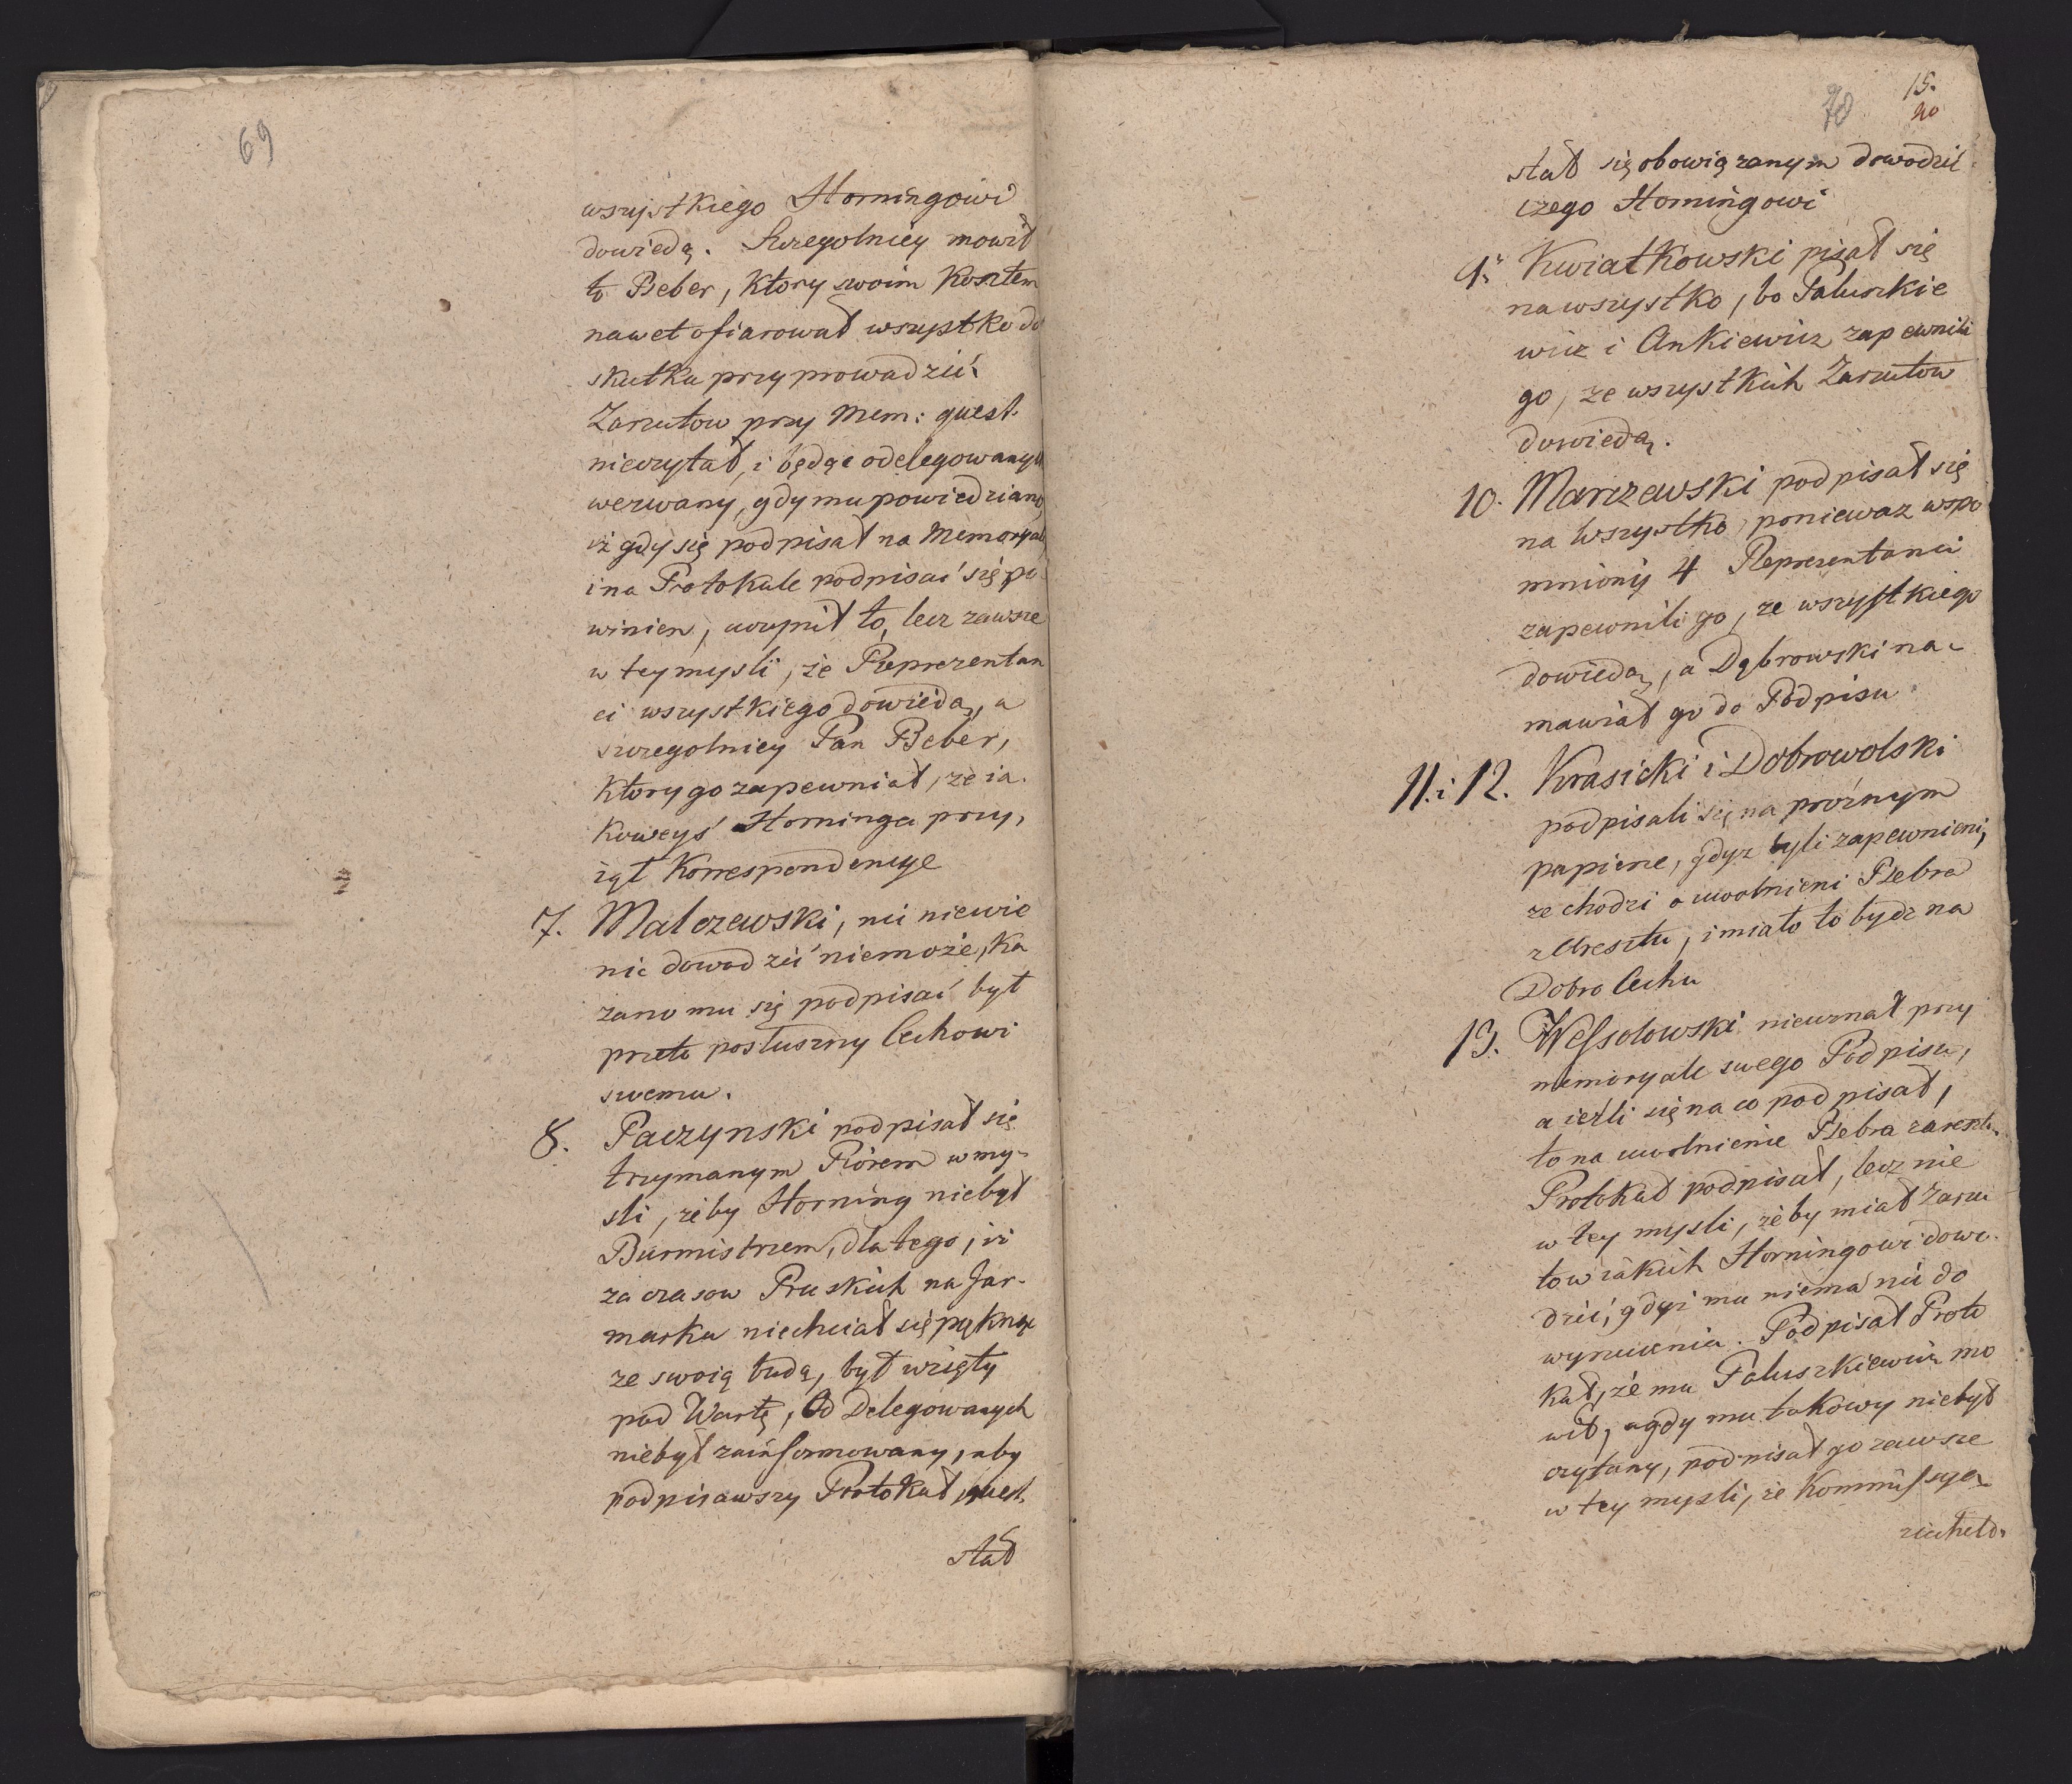 69
wszystkiego Horningowi
dowiedą. Szczegolniey mowił
to Beber, ktory swoim kosztem
nawet ofiarował wszystko do
skutku przyprowadzić.
Zarzutow przy Mem: quest.
nieczytał, i będąc odelegowanych
wezwany, gdy mu powiedziano,
iż gdy się podpisał na Memoryal
i na Protokule podpisać się po
winien, uczynił to, lecz zawsze
w tey mysli, że Reprezentan
ci wszystkiego dowiedą, a
szczegolniey Pan Beber,
ktory go zapewniał, ze ia.
koweyś Horninga przy,
iął Korrespondencye
7. Malczewski, nic niewie
nic dowodzić niemoże, ka
zano mu się podpisać był
przeto posłuszny Cechowi
swemu.
8. Paczynski podpisał się
trzymanym Piorem w my-
sli, żeby Horning niebył
Burmistrzem, dla tego, iż
za czasow Pruskich na Jar-
marku niechciał się pąknąć
ze swoią budą, był wzięty
pod Wartę, Od Delegowanych
niebył zainformowany, aby
podpisawszy Protokuł quest.
stał
70
15.
20
stał się obowiązanym dowodzić
czego Horningowi
9. Kwiatkowski pisał się
na wszystko, bo Paluszkie
wicz i Ankiewicz zapewnili
go, ze wszystkich Zarzutow
dowiedą.
10. Marczewski podpisał się
na wszystko, poniewaz wspo
mniony 4 Reprezentanci
zapewnili go, ze wszystkiego
dowiedą, a Dąbrowski na-
mawiał go do Podpisu
11. i 12. Krasicki i Dobrowolski
podpisali się na próżnym
papierze, gdyz byli zapewnieni,
ze chodzi o uwolnieni Bebra
z Aresztu, i miało to bydz na
Dobro Cechu
13. Wessolowski nieuznał przy
memoryale swego Podpisu,
a ieżli się na co podpisał,
to na uwolnienie Bebra zareszt.
Protokuł podpisał, lecz nie
w tey mysli, żeby miał Zarzu
tow iakich Horningowi dowo-
dzić, gdyż mu niema nic do
wyrzucenia. Podpisał Proto
kuł, że mu Paluszkiewicz mo
wił, a gdy mu takowy niebył
czytany, podpisał go zawsze
w tey mysli, że Kommissya